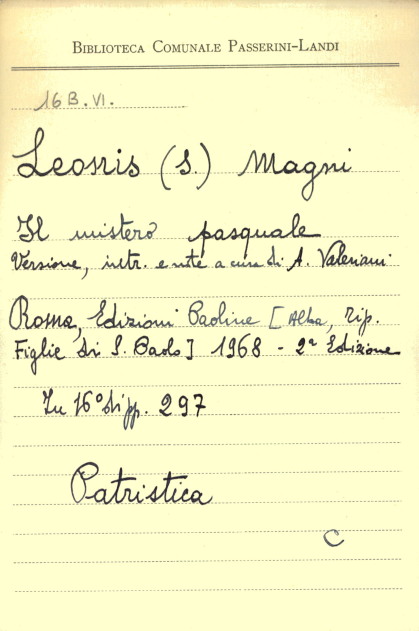 BIBLIOTECA COMUNALE PASSERINI-LANDI
16 B. VI.
Leonis (S.) Magni
Il mistero pasquale
Versione, intr. e note a cura di A. Valeriani
Roma, Edizioni Paoline [Alba, Tip.
Figlie di S. Paolo] 1968 - 2ª Edizione
In 16° di pp. 297
Patristica
C